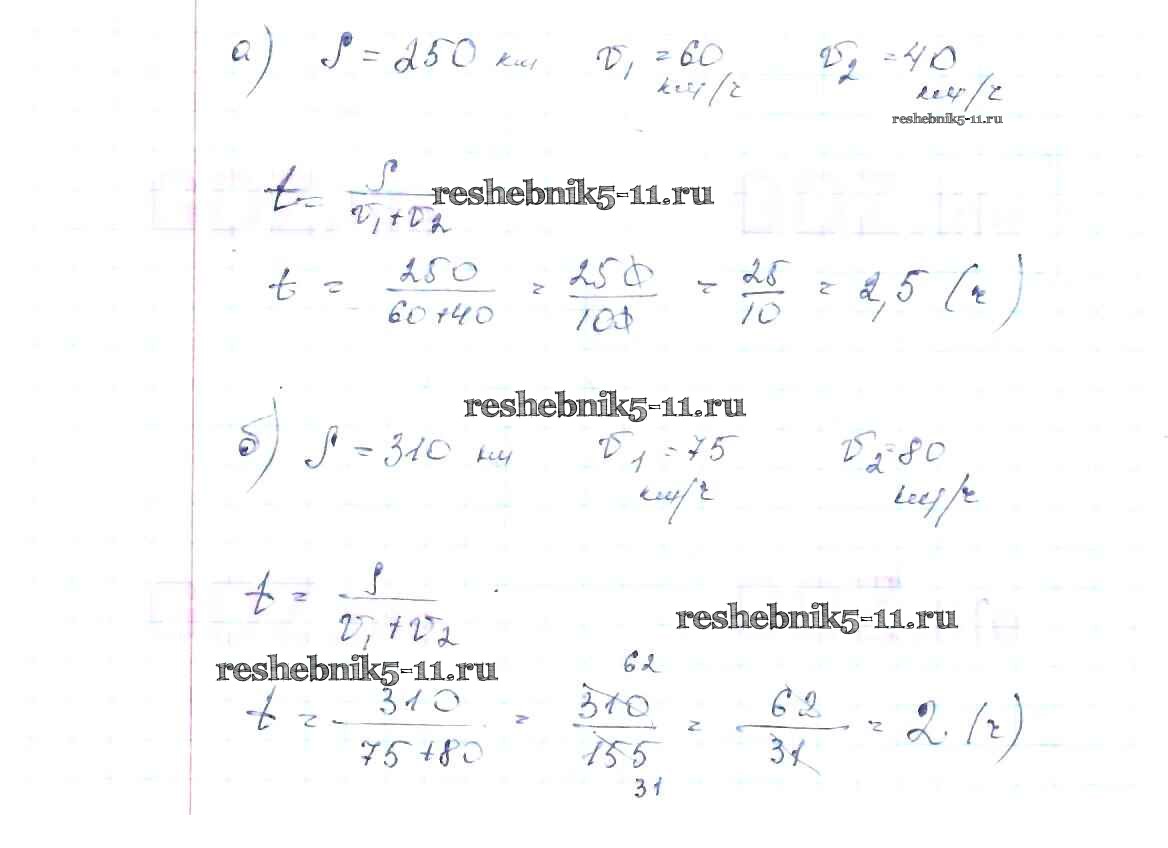 а) S = 250 км v₁ = 60 км/ч v₂ = 40 км/ч
reshebnik5-11.ru
t = S / (v₁ + v₂) reshebnik5-11.ru
t = 250 / (60+40) = 250 / 100 = 25 / 10 = 2,5 (ч)
reshebnik5-11.ru
б) S = 310 км v₁ = 75 км/ч v₂ = 80 км/ч
t = S / (v₁ + v₂)
reshebnik5-11.ru
reshebnik5-11.ru
62
t = 310 / (75+80) = 310 / 155 = 62 / 31 = 2 (ч)
31